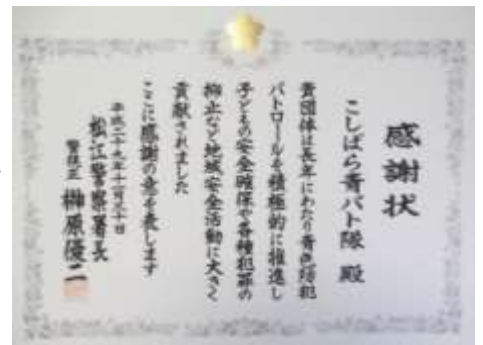 感謝状
こしばら青パト隊 殿
貴団体は長年にわたり青色防犯
パトロールを積極的に推進し
子どもの安全確保や各種犯罪の
抑止など地域安全活動に大きく
貢献されました
ここに感謝の意を表します
平成二十九年十一月三十日
松江警察署長
警視正 榊原優二